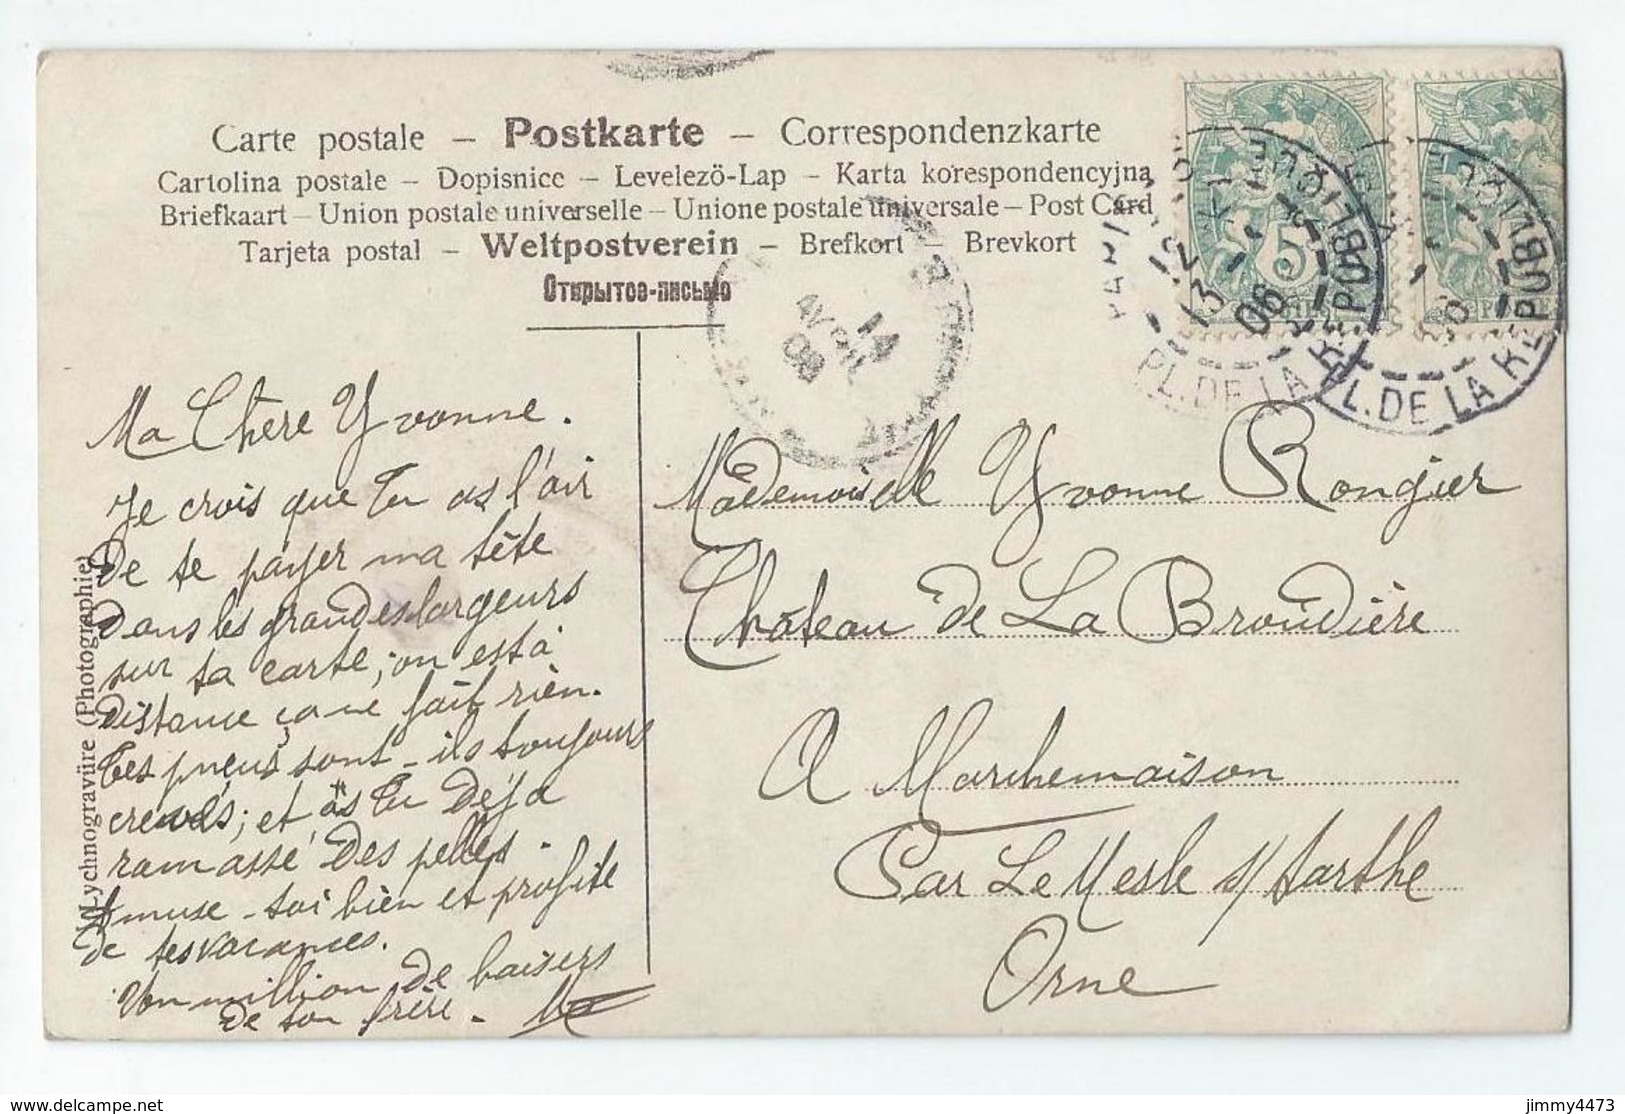 Carte postale – Postkarte – Correspondenzkarte
Cartolina postale – Dopisnice – Levelezö-Lap – Karta korespondencyjna
Briefkaart – Union postale universelle – Unione postale universale – Post Card
Tarjeta postal – Weltpostverein – Brefkort – Brevkort
Открытое-письмо
14
AVRIL
06
PARIS
12
13
06
PL. DE LA REPUBLIQUE
5
PL. DE LA REPUBLIQUE
06
Ma Chère Yvonne.
Je crois que tu as l'air
De te payer ma tête
Dans les grandes largeurs
sur ta carte; on est à
Distance ça ne fait rien.
tes pneus sont-ils toujours
crevés; et as tu Déja
ramassé Des pelles.
Amuse-toi bien et profite
De tes vacances.
Un million De baisers
De ton frère.
Mademoiselle Yvonne Rongier
Château de La Broudière
A Marchemaison
Par Le Mesle s/ Sarthe
Orne
Lychnogravüre (Photographie)
delcampe.net
jimmy4473